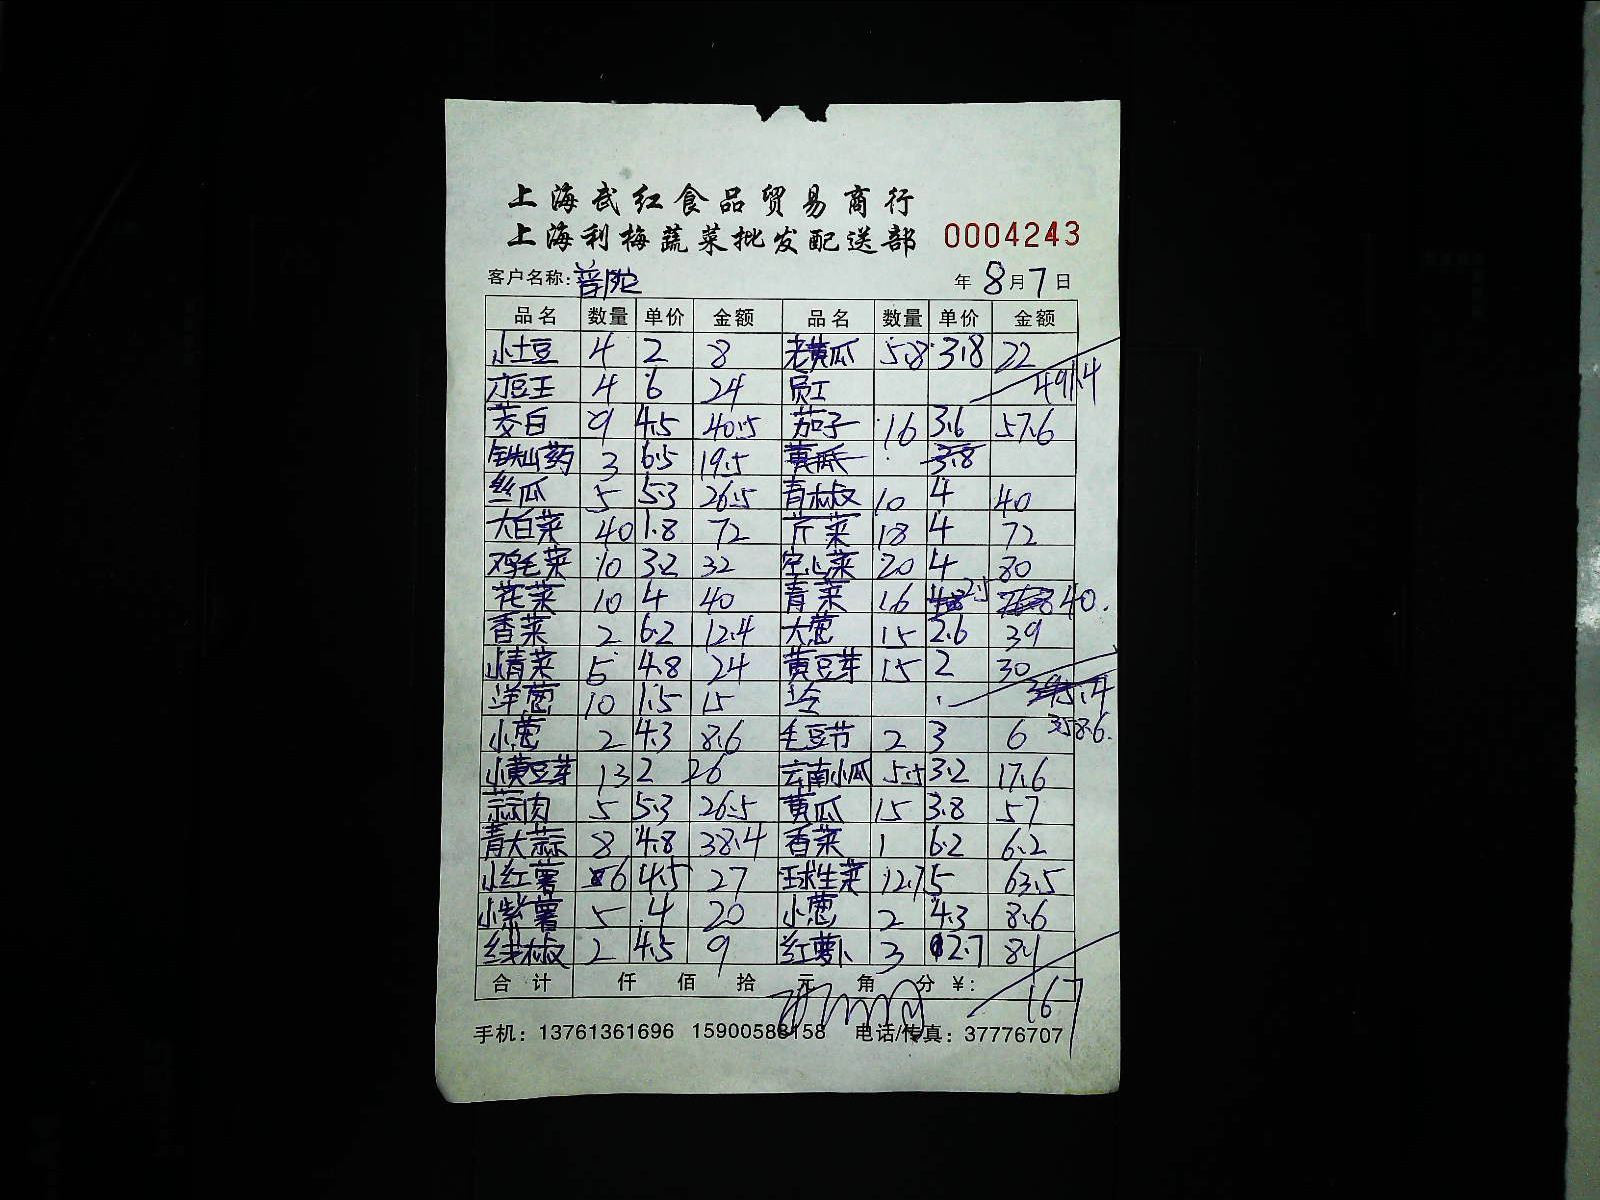 上海武红食品贸易商行
上海利梅蔬菜批发配送部 0004243
客户名称: 普陀 年 8 月 7 日
品名 数量 单价 金额 品名 数量 单价 金额
小土豆 4 2 8 老黄瓜 5.8 3.8 22
豆王 4 6 24 员工 491.4
茭白 9 4.5 40.5 茄子 16 3.6 57.6
铁山药 3 6.5 19.5 黄瓜 3.8
丝瓜 5 5.3 26.5 青椒 10 4 40
大白菜 40 1.8 72 芹菜 18 4 72
鸡毛菜 10 3.2 32 空心菜 20 4 80
花菜 10 4 40 青菜 16 2.5 40.
香菜 2 6.2 12.4 大葱 15 2.6 39
小青菜 5 4.8 24 黄豆芽 15 2 30
洋葱 10 1.5 15 395.4
小葱 2 4.3 8.6 毛豆节 2 3 6 358.6.
小黄豆芽 13 2 26 云南小瓜 5.5 3.2 17.6
蒜肉 5 5.3 26.5 黄瓜 15 3.8 57
青大蒜 8 4.8 38.4 香菜 1 6.2 6.2
小红薯 6 4.5 27 球生菜 12.7 5 63.5
小紫薯 5 4 20 小葱 2 4.3 8.6
线椒 2 4.5 9 红萝卜 3 2.7 8.1
合计 仟 佰 拾 元 角 分 ¥: 167
手机: 13761361696 15900588158 电话/传真: 37776707